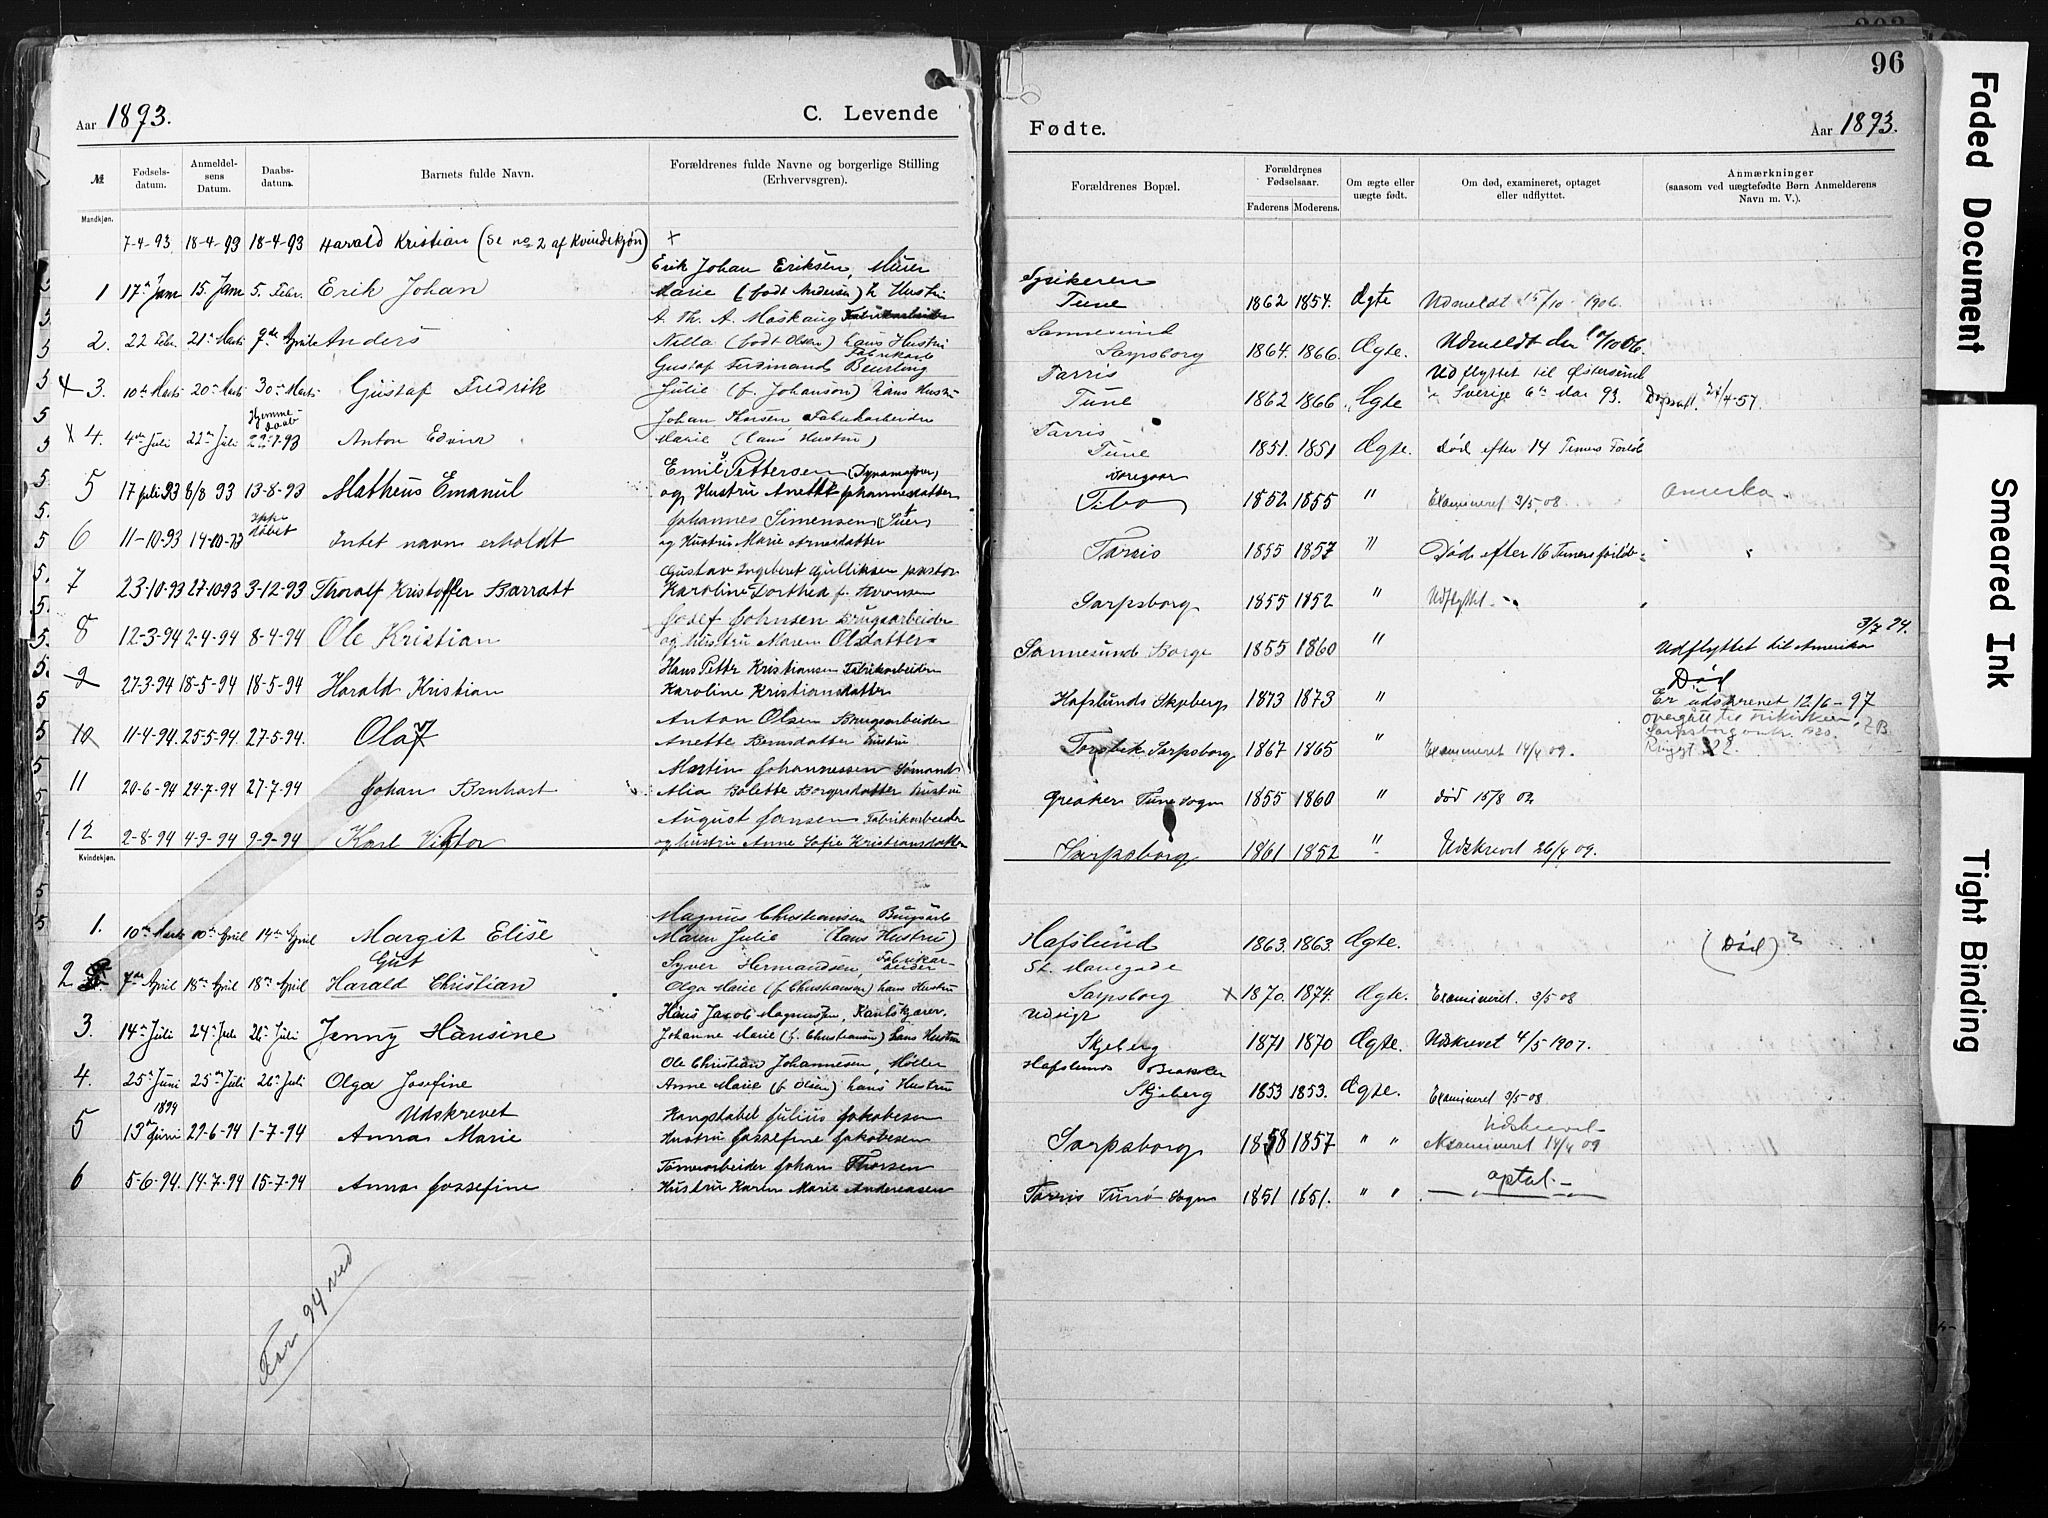 96
Aar 1893.
C. Levende
Fødte.
Aar 1893.
№
Fødsels-datum.
Anmeldel-sens Datum.
Daabs-datum.
Barnets fulde Navn.
Forældrenes fulde Navne og borgerlige Stilling (Erhvervsgren).
Forældrenes Bopæl.
Forældrenes Fødselsaar.
Faderens Moderens.
Om ægte eller uægte født.
Om død, examineret, optaget eller udflyttet.
Anmærkninger (saasom ved uægtefødte Børn Anmelderens Navn m. V.).
Mandkjøn.
7-4-93 18-4-93 18-4-93 Harald Kristian (Se no 2 af Kvindekjøn) +
Erik Johan Eriksen, Murer
1 17de Jan 15. Jan 5. Febr. Erik Johan Marie (født Andersen) h Hustru Tune 1862 1854. Ægte Udmeldt 15/10-1906.
A. Th. A. Moskaug Fabrikarbeider
Sannesund
2. 22 Febr. 21de Marts 9de April Anders Nilla (født Olsen) hans Hustru Sarpsborg 1864. 1866. Ægte. Udmeldt den 10/10 06.
Gustaf Ferdinand Beurling Fabrikarb
Tarris Udflyttet til Østersund
x 3. 10de Marts 20de Marts 30te Marts Gustaf Fredrik Julie (f. Johanson) hans Hustru Tune 1862 1866 Ægte i Sverige 6te Mar 93. 24/4-57.
Hjemmedaab
Johan Thorsen Fabrikarbeider
Tarris
x 4. 4de Juli 22de Juli 22-7-93 Anton Edvin Marie (hans Hustru) Tune 1851. 1851 Ægte. Død efter 14 Timers Forløb
Emil Pettersen
5 17 juli 93 8/8 93 13-8-93 Matheus Emanuel og Hustru Anette Johannesdatter 1852 1855 " Examineret 3/5.08. Amerika
Ikke døbet
Johannes Simensen
6 11-10-93 14-10-93 Intet navn erholdt og Hustru Marie Arnesdatter Tarris 1855 1857 " Død efter 16 Timers forløb
Gustav Ingebret Gulliksen pastor
7 23-10-93 27-10-93 3-12-93 Thoralf Kristoffer Barratt Karoline Dorthea f. Sarpsborg 1855 1852 " Udflyttet.
Josef Johnsen Brugsarbeider
3/7 24.
8 12-3-94 2-4-94 8-4-94 Ole Kristian og hustru Maren Olsdatter Sannesund Borge 1855 1860 " Udflyttet til Amerika
Hans Petter Kristiansen Fabrikarbeider
Død
9 27-3-94 18-5-94 18-5-94 Harald Kristian Karoline Kristiansdatter Hafslunds Skjeberg 1873 1873 " Er udskrevet 12/6-97
Anton Olsen Brugsarbeider
10 11-4-94. 25-5-94. 27-5-94. Olaf Anette Berntsdatter hustru Sarpsborg 1867 1865 " Examineret 14/4 09.
Martin Johannessen Sømand
11 20-6-94 24-7-94 27-7-94 Johan Bernhart Alia Bolette Borgersdatter hustru Greaker Tune Sogn 1855 1860 " død 15/8 02
August Jansen Fabrikarbeider
12 2-8-94 4-9-94 9-9-94 Karl Viktor og hustru Anne Sofie Kristiansdatter Sarpsborg 1861 1852 " Udskrevet 26/4 09.
Kvindekjøn.
Magnus Christiansen Brugsarb
1. 10de Marts 10de April 14de April Margit Elise Maren Julie (hans Hustru) Hafslund 1863. 1863 Ægte. (Død)?
Gut
Syver Hermandsen, Fabrikarbeider
St. Mariegade
2 7de April 18de April 18de April Harald Christian Olga Marie (f. Christiansen) hans Hustru Sarpsborg x 1870. 1874. Ægte. Examineret. 3/5 08
Hans Jacob Magnussen,
Udsigt
3. 14de Juli 24de Juli 26de Juli Jenny Hansine Johanne Marie (f. Christiansen) hans Hustru Skjeberg 1871 1870 Ægte. Udskrevet 4/5 1907.
Ole Christian Johannesen, Møller
Hafslunds Bakker
4. 25de Juni 25de Juli 26de Juli Olga Josefine Anne Marie (f. Olsen) hans Hustru Skjeberg 1853 1853. Ægte. Examineret 3/5-08
1894
Udskrevet
Julius Jakobsen
Udskrevet
5 13de Juni 29-6-94 1-7-94 Anna Marie Hustru Jossefine Jakobsen Sarpsborg 1858 1857 " " Examineret 14/4 09
Tømmerarbeider Johan Thorsen
optal.
6 5-6-94. 14-7-94 15-7-94 Anna Jossefine Hustru Karen Marie Andreasen Tarris Tune Sogn 1851 1851. " "
For 94 ved
Faded Document
Smeared Ink
Tight Binding